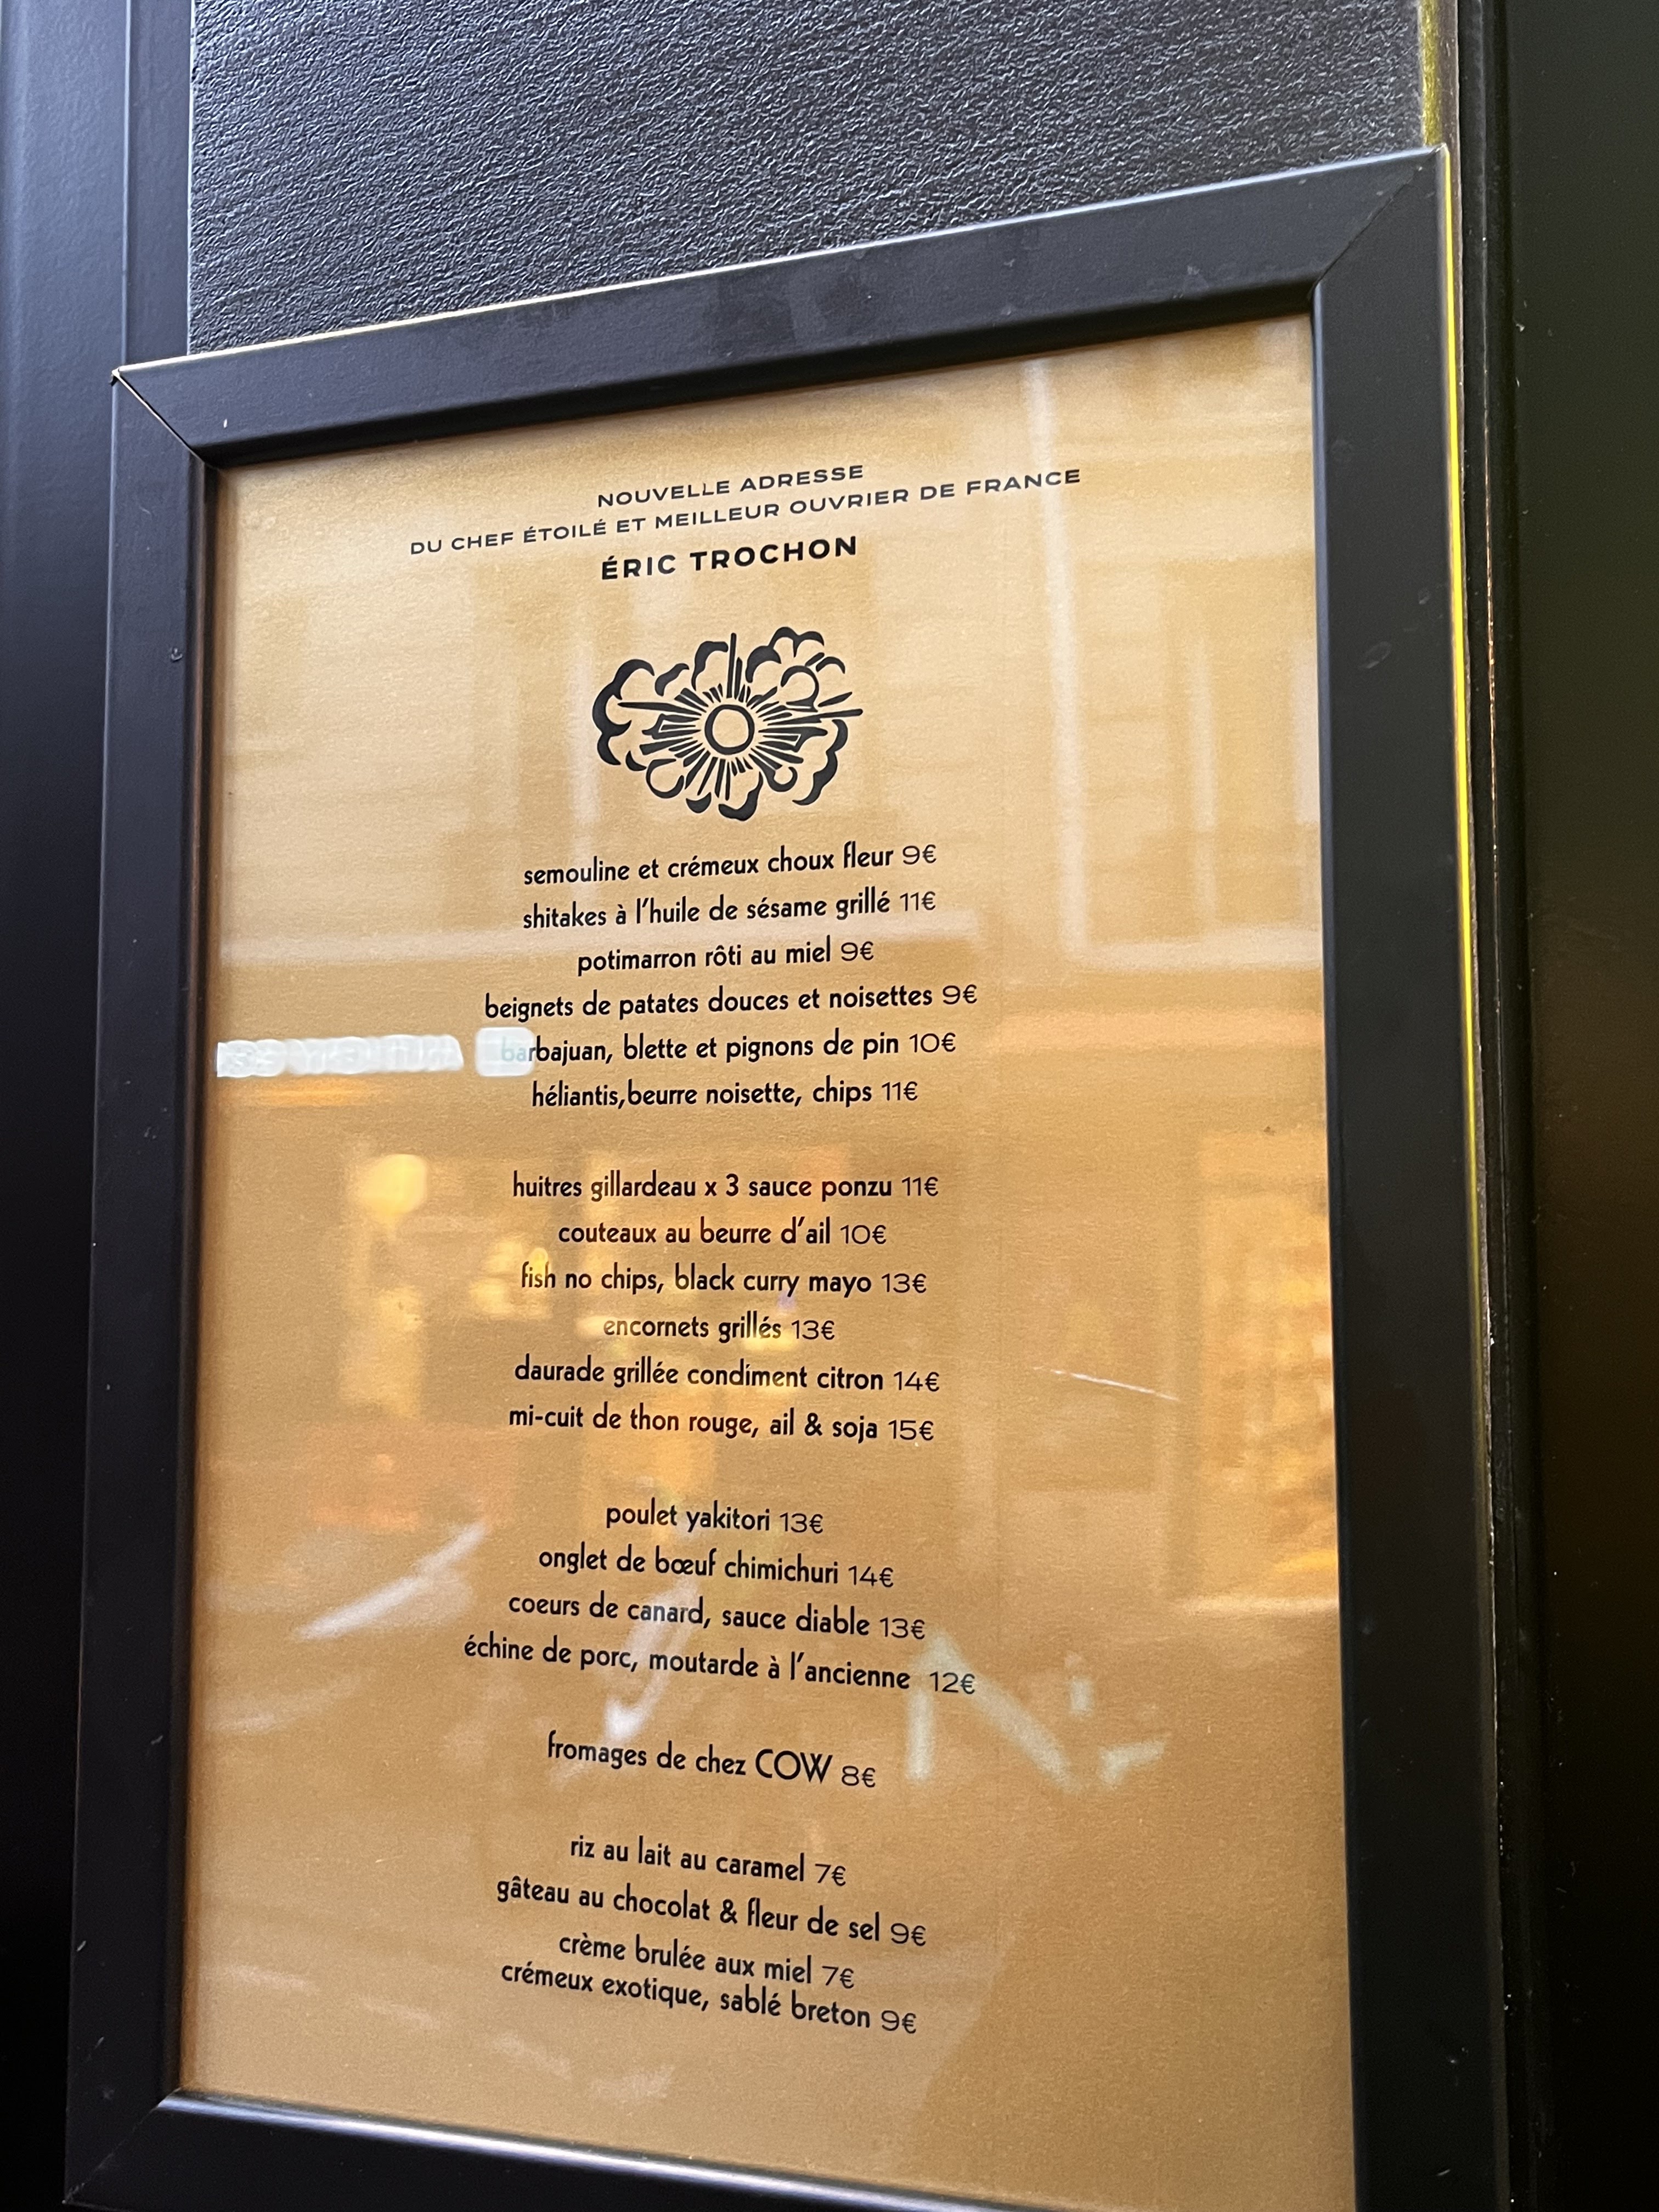 NOUVELLE ADRESSE
DU CHEF ÉTOILÉ ET MEILLEUR OUVRIER DE FRANCE
ÉRIC TROCHON
semouline et crémeux choux fleur 9€
shitakes à l'huile de sésame grillé 11€
potimarron rôti au miel 9€
beignets de patates douces et noisettes 9€
barbajuan, blette et pignons de pin 10€
héliantis,beurre noisette, chips 11€
huitres gillardeau x 3 sauce ponzu 11€
couteaux au beurre d'ail 10€
fish no chips, black curry mayo 13€
encornets grillés 13€
daurade grillée condiment citron 14€
mi-cuit de thon rouge, ail & soja 15€
poulet yakitori 13€
onglet de bœuf chimichuri 14€
coeurs de canard, sauce diable 13€
échine de porc, moutarde à l'ancienne 12€
fromages de chez COW 8€
riz au lait au caramel 7€
gâteau au chocolat & fleur de sel 9€
crème brulée aux miel 7€
crémeux exotique, sablé breton 9€